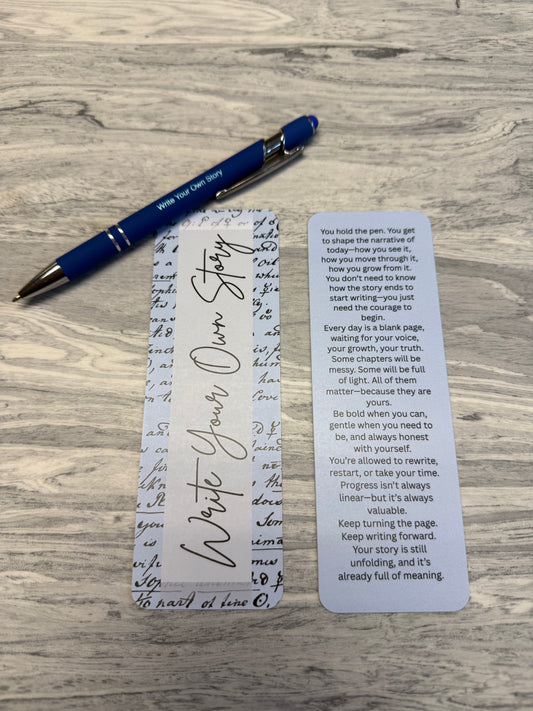 Write Your Own Story
Write Your Own Story
You hold the pen. You get
to shape the narrative of
today—how you see it,
how you move through it,
how you grow from it.
You don't need to know
how the story ends to
start writing—you just
need the courage to
begin.
Every day is a blank page,
waiting for your voice,
your growth, your truth.
Some chapters will be
messy. Some will be full
of light. All of them
matter—because they are
yours.
Be bold when you can,
gentle when you need to
be, and always honest
with yourself.
You're allowed to rewrite,
restart, or take your time.
Progress isn't always
linear—but it's always
valuable.
Keep turning the page.
Keep writing forward.
Your story is still
unfolding, and it's
already full of meaning.